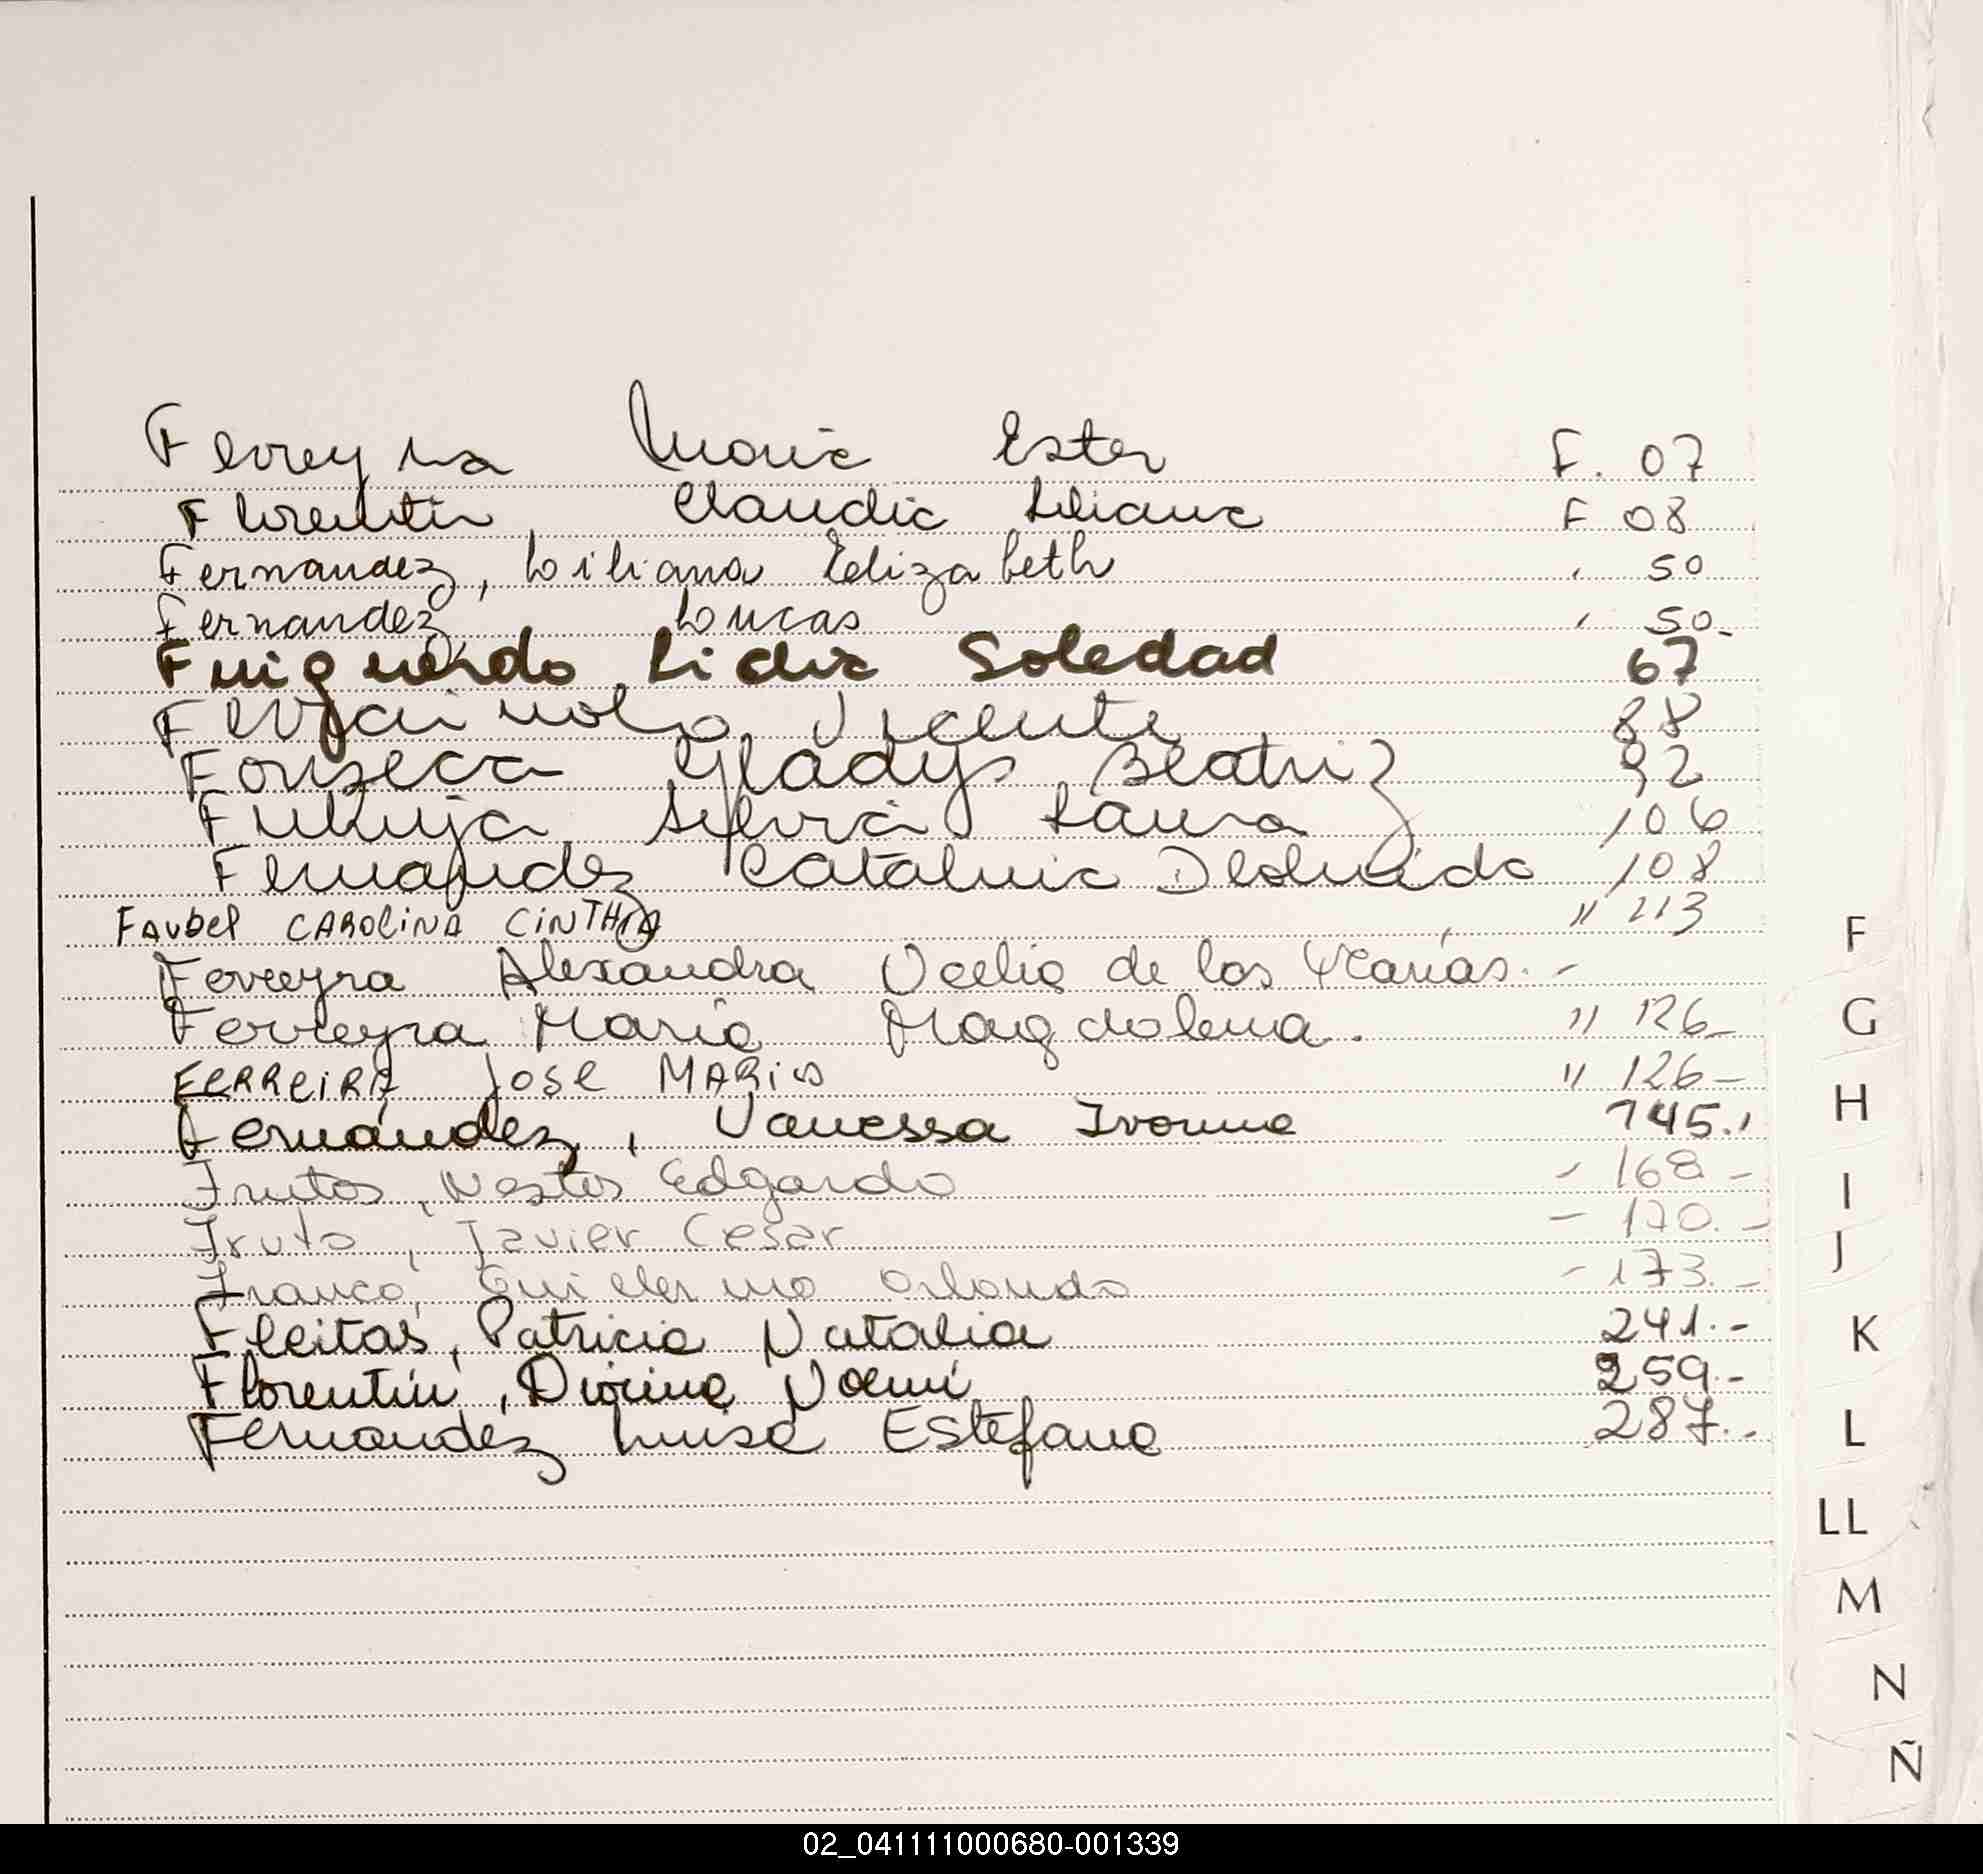 Ferreyra Maria Ester F. 07
Florentin Claudia Liliana F 08
Fernandez, Liliana Elizabeth " 50
Fernandez Lucas " 50-
Lidia Soledad 67
Vicente 88
Fonseca Gladys Beatriz 92
Silvia Laura 106
Fernandez Catalina 108
FAUBEL CAROLINA CINTHIA " 113
Ferreyra Alexandra de los
Ferreyra Maria Magdalena. " 126-
FERREIRA JOSE MARIO " 126-
Fernández, Vanessa Ivonne 145.,
Frutos, Nestor Edgardo - 168 -
Fruto, Javier Cesar - 170. -
Franco, Guillermo Orlando - 173. -
Fleitas, Patricia Natalia 241.-
Florentin, Divina Noemi 259.-
Fernandez Luisa Estefana 287.-
F
G
H
I
J
K
L
LL
M
N
Ñ
02_041111000680-001339